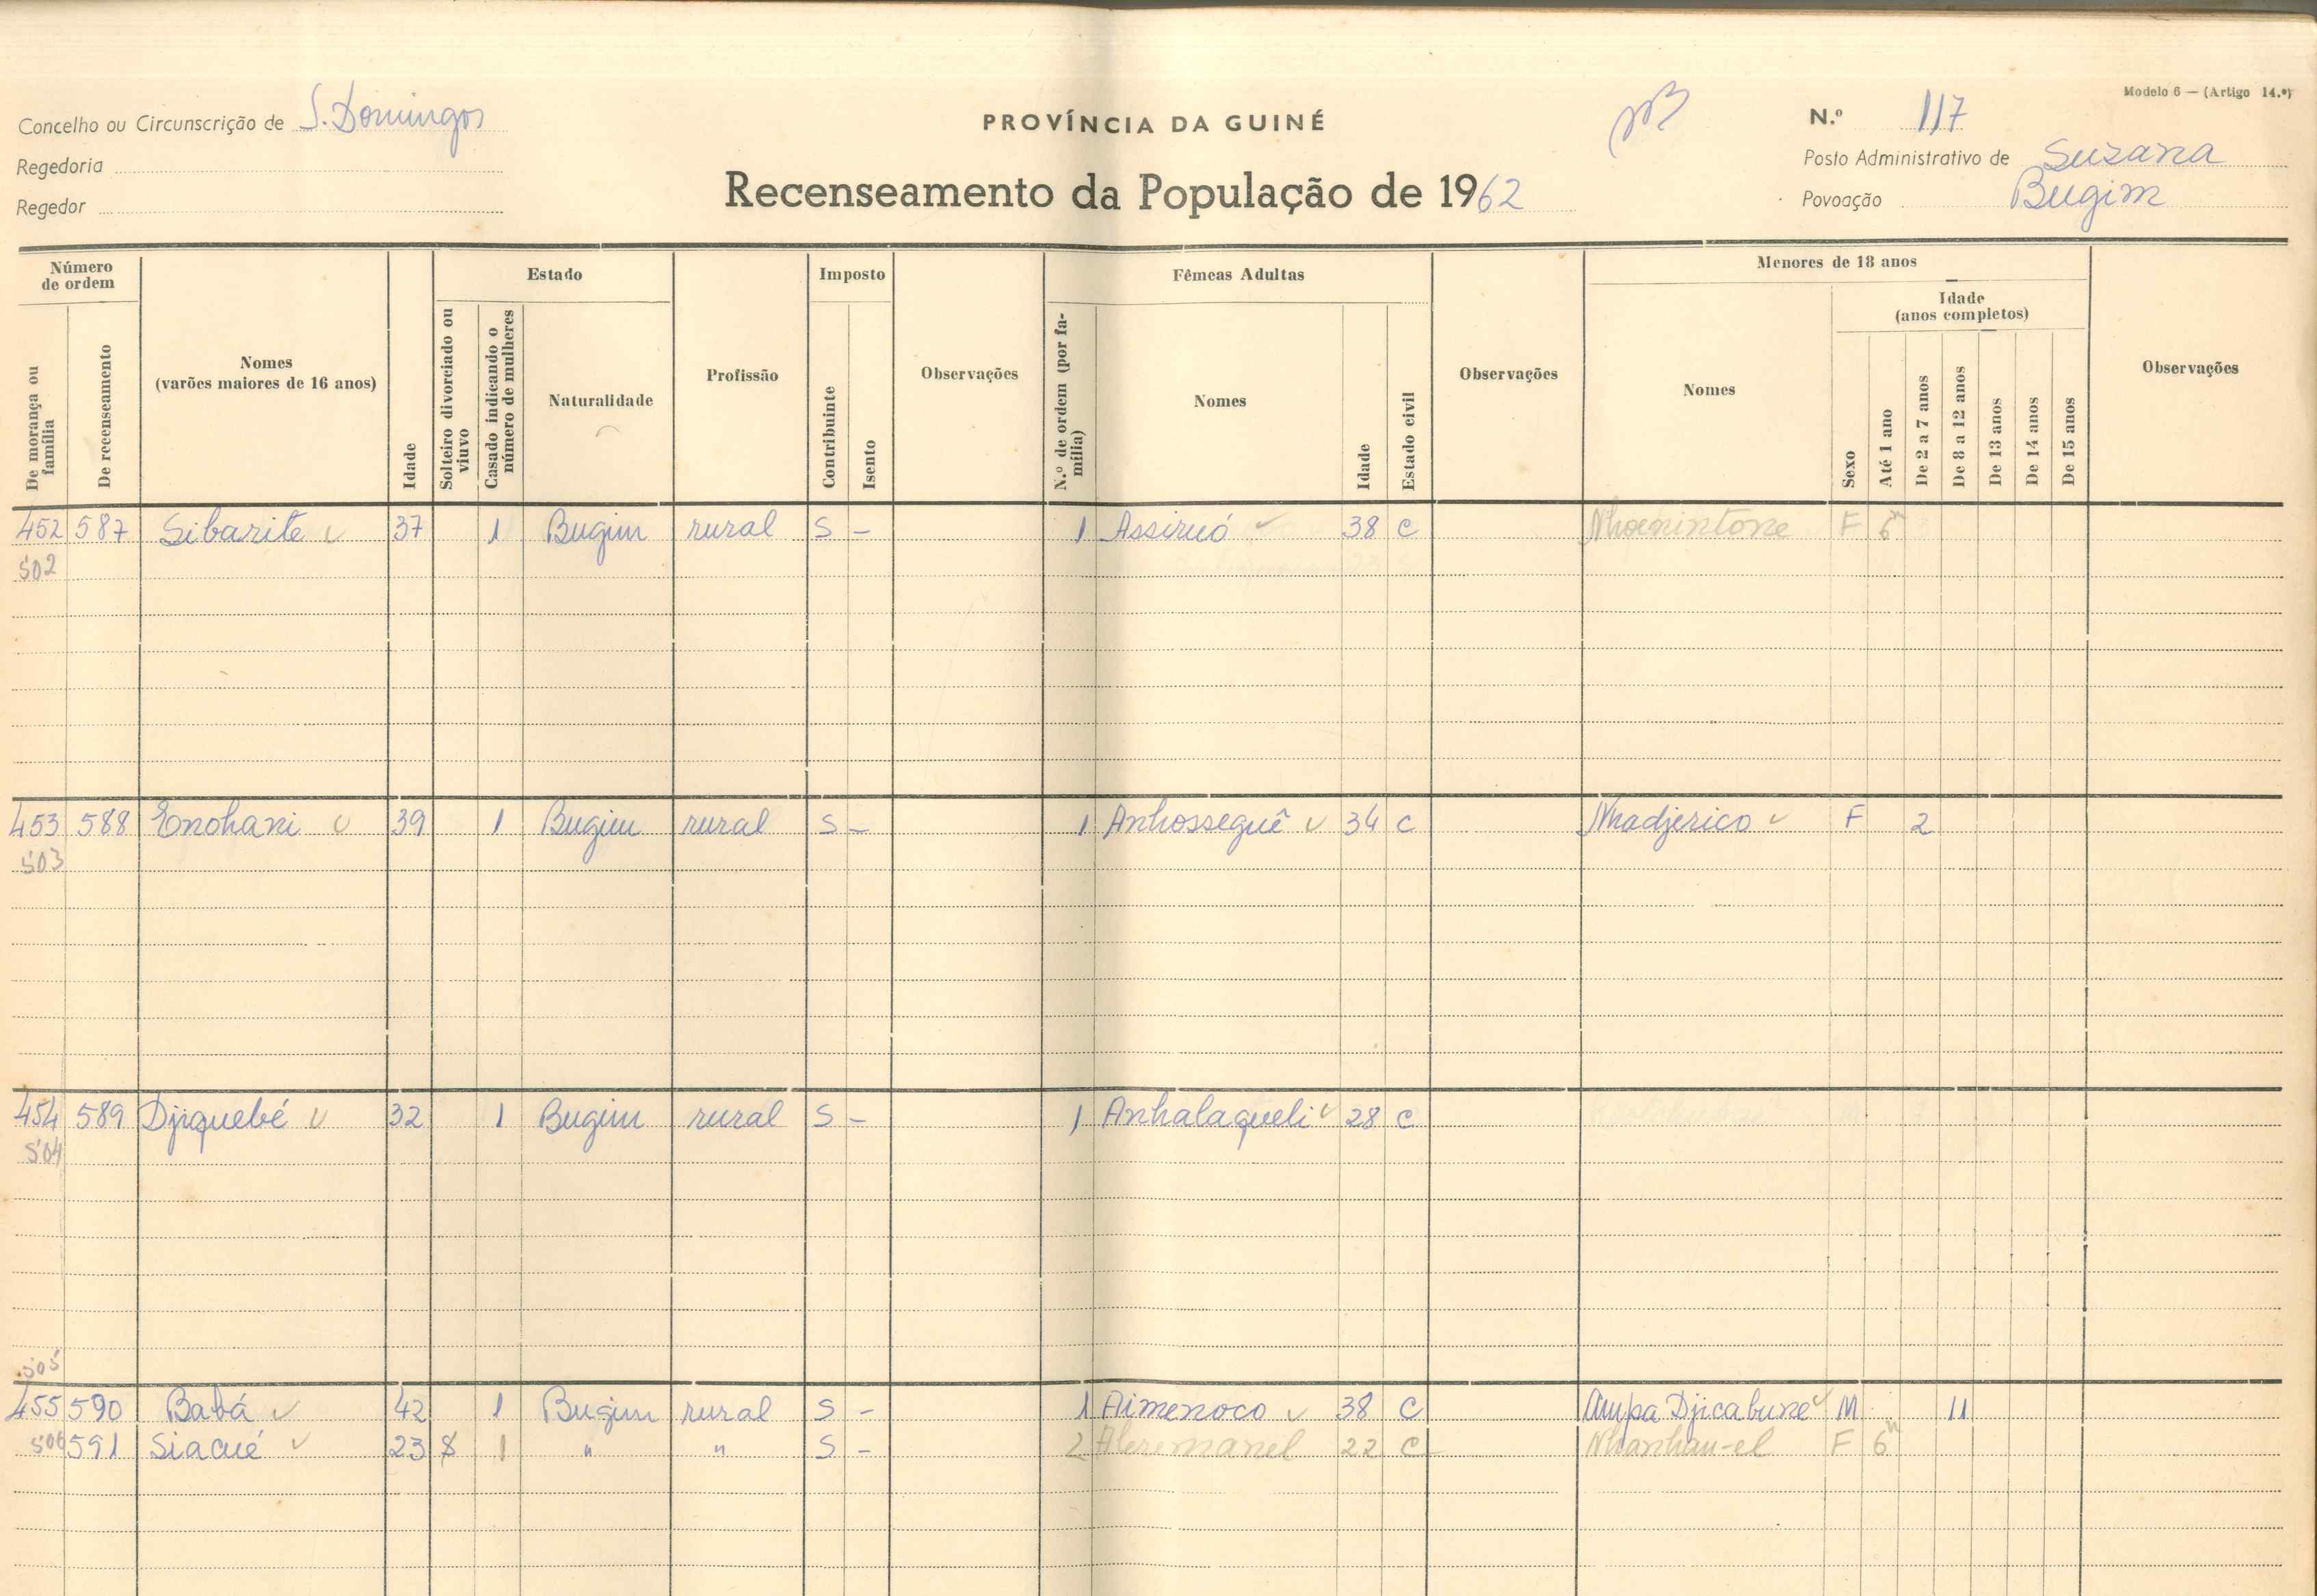 Modelo 6 — (Artigo 14.º)
Concelho ou Circunscrição de S. Domingos
PROVÍNCIA DA GUINÉ
N.º 117
Regedoria
Posto Administrativo de Suzana
Regedor
Recenseamento da População de 1962
Povoação Bugim
Número de ordem
De morança ou família
De recenseamento
Nomes
(varões maiores de 16 anos)
Idade
Estado
Solteiro divorciado ou viuvo
Casado indicando o número de mulheres
Naturalidade
Profissão
Imposto
Contribuinte
Isento
Observações
Fêmeas Adultas
N.º de ordem (por família)
Nomes
Idade
Estado civil
Observações
Menores de 18 anos
Nomes
Sexo
Idade
(anos completos)
Até 1 ano
De 2 a 7 anos
De 8 a 12 anos
De 13 anos
De 14 anos
De 15 anos
Observações
452 587 Sibarite 37 1 Bugim rural S - 1 Assiruó 38 C F 6
502
453 588 Enohani 39 1 Bugim rural S - 1 Anhosseguê 34 C Nhadjerico F 2
503
454 589 Djiquebé 32 1 Bugim rural S - 1 Anhalaqueli 28 C
504
505
455 590 Babá 42 1 Bugim rural S - 1 Aimenoco 38 C Ampa Djicabune M 11
506 591 Siacué 23 1 " " S - 2 22 C Nhanhau-el F 6